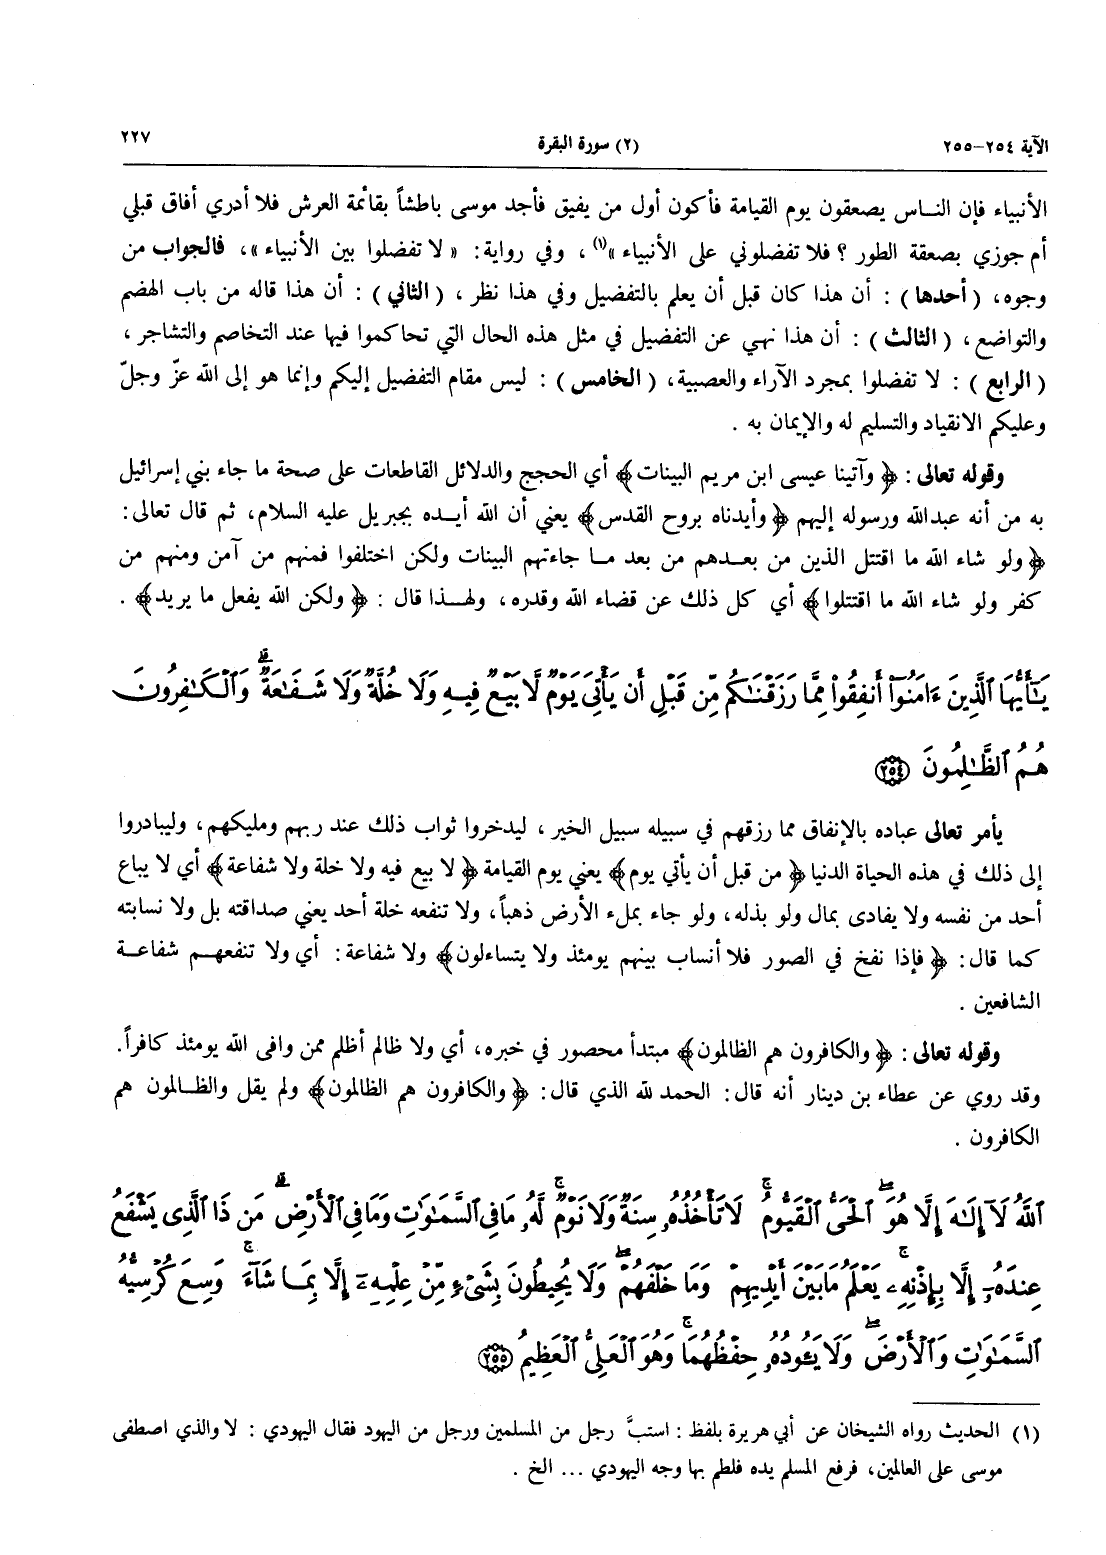 الآية ٢٥٤-٢٥٥ (٢) سورة البقرة ٢٢٧
الأنبياء فإن النـاس يصعقون يوم القيامة فأكون أول من يفيق فأجد موسى باطشاً بقائمة العرش فلا أدري أفاق قبلي
أم جوزي بصعقة الطور ؟ فلا تفضلوني على الأنبياء »(١) ، وفي رواية: « لا تفضلوا بين الأنبياء »، فالجواب من
وجوه، ( أحدها ) : أن هذا كان قبل أن يعلم بالتفضيل وفي هذا نظر ، ( الثاني ) : أن هذا قاله من باب الهضم
والتواضع ، ( الثالث ) : أن هذا نهي عن التفضيل في مثل هذه الحال التي تحاكموا فيها عند التخاصم والتشاجر ،
( الرابع ) : لا تفضلوا بمجرد الآراء والعصبية، ( الخامس ) : ليس مقام التفضيل إليكم وإنما هو إلى الله عزّ وجلّ
وعليكم الانقياد والتسليم له والإيمان به .
وقوله تعالى : ﴿ وآتينا عيسى ابن مريم البينات﴾ أي الحجج والدلائل القاطعات على صحة ما جاء بني إسرائيل
به من أنه عبدالله ورسوله إليهم ﴿ وأيدناه بروح القدس﴾ يعني أن الله أيـده بجبريل عليه السلام، ثم قال تعالى:
﴿ ولو شاء الله ما اقتتل الذين من بعـدهم من بعد مـا جاءتهم البينات ولكن اختلفوا فمنهم من آمن ومنهم من
كفر ولو شاء الله ما اقتتلوا﴾ أي كل ذلك عن قضاء الله وقدره، ولهـذا قال : ﴿ ولكن الله يفعل ما يريد﴾ .
يَـٰٓأَيُّهَا ٱلَّذِينَ ءَامَنُوٓا۟ أَنفِقُوا۟ مِمَّا رَزَقْنَـٰكُم مِّن قَبْلِ أَن يَأْتِىَ يَوْمٌ لَّا بَيْعٌ فِيهِ وَلَا خُلَّةٌ وَلَا شَفَـٰعَةٌ ۗ وَٱلْكَـٰفِرُونَ
هُمُ ٱلظَّـٰلِمُونَ ﴿٢٥٤﴾
يأمر تعالى عباده بالإنفاق مما رزقهم في سبيله سبيل الخير ، ليدخروا ثواب ذلك عند ربهم ومليكهم، وليبادروا
إلى ذلك في هذه الحياة الدنيا ﴿ من قبل أن يأتي يوم﴾ يعني يوم القيامة ﴿ لا بيع فيه ولا خلة ولا شفاعة﴾ أي لا يباع
أحد من نفسه ولا يفادى بمال ولو بذله، ولو جاء بملء الأرض ذهباً، ولا تنفعه خلة أحد يعني صداقته بل ولا نسابته
كما قال: ﴿ فإذا نفخ في الصور فلا أنساب بينهم يومئذ ولا يتساءلون﴾ ولا شفاعة: أي ولا تنفعهـم شفاعـة
الشافعين .
وقوله تعالى : ﴿ والكافرون هم الظالمون﴾ مبتدأ محصور في خبره، أي ولا ظالم أظلم ممن وافى الله يومئذ كافراً.
وقد روي عن عطاء بن دينار أنه قال: الحمد لله الذي قال: ﴿ والكافرون هم الظالمون﴾ ولم يقل والظـالمون هم
الكافرون .
ٱللَّهُ لَآ إِلَـٰهَ إِلَّا هُوَ ٱلْحَىُّ ٱلْقَيُّومُ ۚ لَا تَأْخُذُهُۥ سِنَةٌ وَلَا نَوْمٌ ۚ لَّهُۥ مَا فِى ٱلسَّمَـٰوَٰتِ وَمَا فِى ٱلْأَرْضِ ۗ مَن ذَا ٱلَّذِى يَشْفَعُ
عِندَهُۥٓ إِلَّا بِإِذْنِهِۦ ۚ يَعْلَمُ مَا بَيْنَ أَيْدِيهِمْ وَمَا خَلْفَهُمْ ۖ وَلَا يُحِيطُونَ بِشَىْءٍ مِّنْ عِلْمِهِۦٓ إِلَّا بِمَا شَآءَ ۚ وَسِعَ كُرْسِيُّهُ
ٱلسَّمَـٰوَٰتِ وَٱلْأَرْضَ ۖ وَلَا يَـُٔودُهُۥ حِفْظُهُمَا ۚ وَهُوَ ٱلْعَلِىُّ ٱلْعَظِيمُ ﴿٢٥٥﴾
(١) الحديث رواه الشيخان عن أبي هريرة بلفظ : استبَّ رجل من المسلمين ورجل من اليهود فقال اليهودي : لا والذي اصطفى
موسى على العالمين، فرفع المسلم يده فلطم بها وجه اليهودي ... الخ .